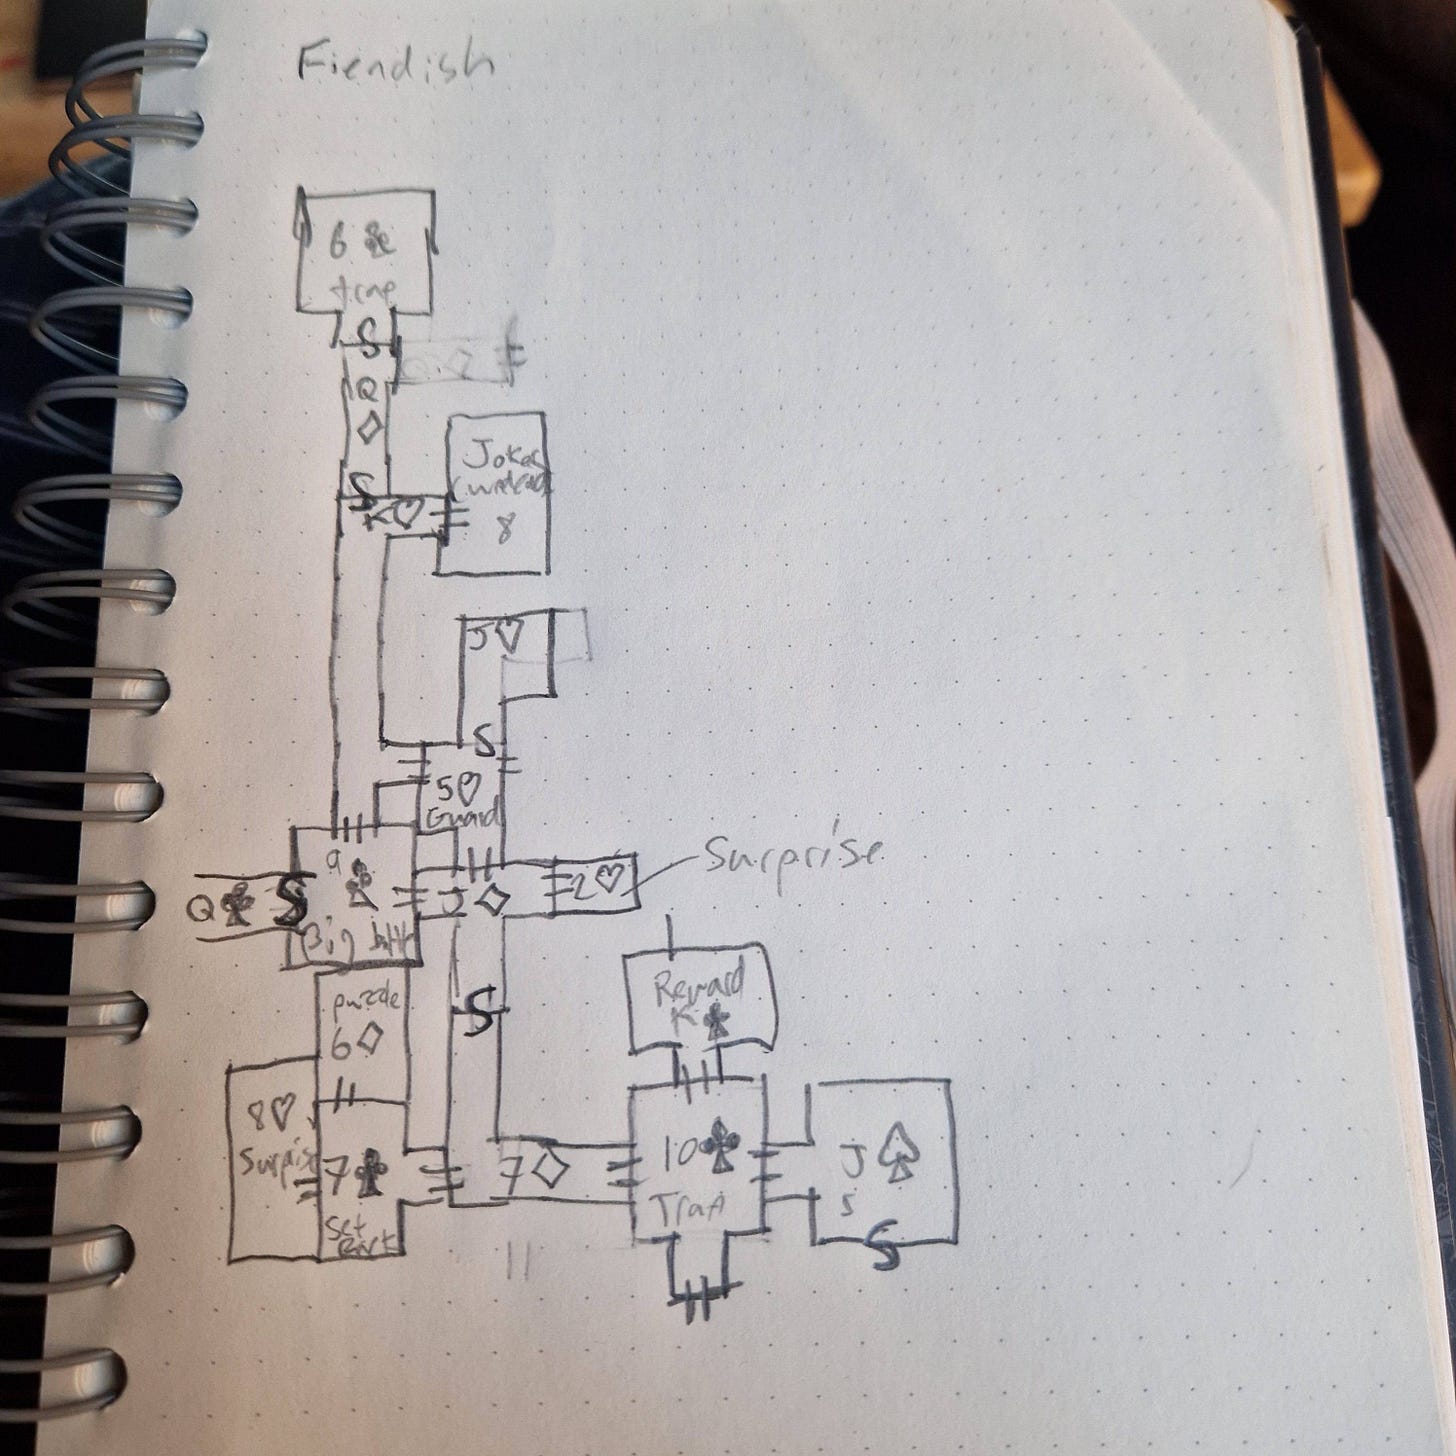 Fiendish
6 ♣
trap
S
Q
♢
S
K♡
Joker
8
J♡
S
5♡
Guard
9
♣
Big
Q♣
S
J ♢
2♡
Surprise
S
puzzle
6♢
Reward
K♣
8♡
Surprise
7♣
Set
7♢
10♣
J ♤
S